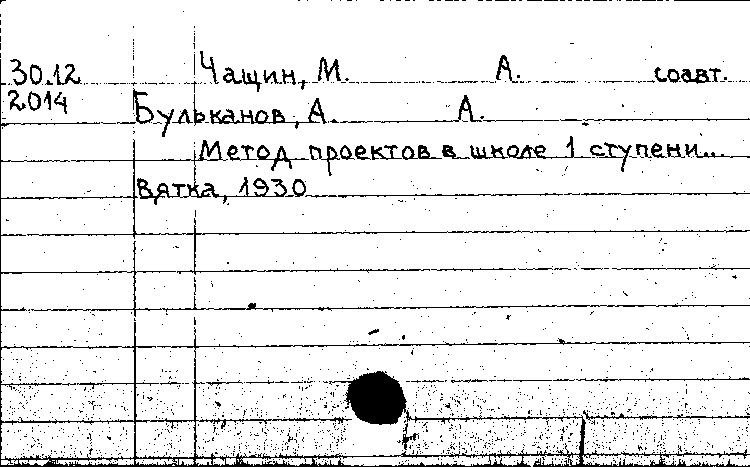 30.12 Чащин, М. А. соавт.
2014 Бульканов, А. А.
Метод проектов в школе 1 ступени...
Вятка, 1930